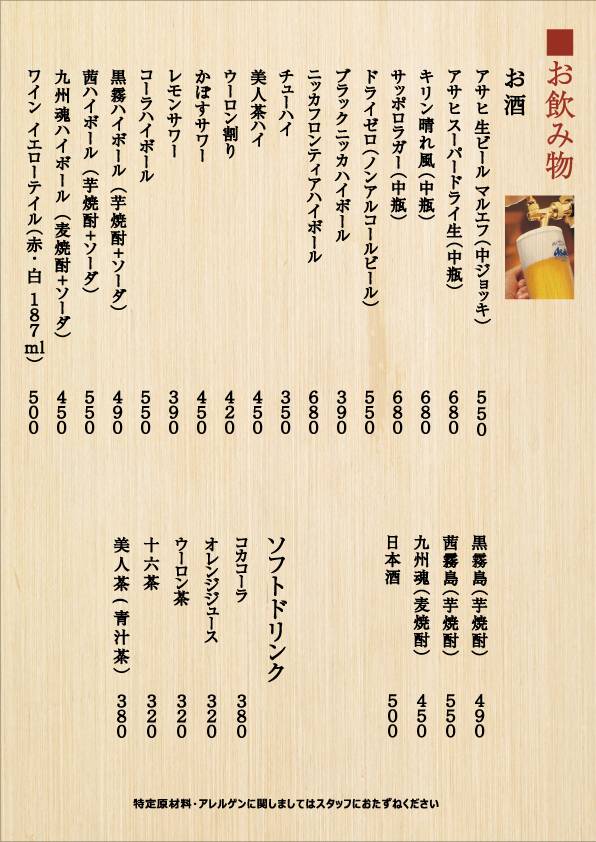 ■お飲み物
お酒
アサヒ 生ビール マルエフ(中ジョッキ) 550
アサヒスーパードライ生(中瓶) 680
キリン晴れ風(中瓶) 680
サッポロラガー(中瓶) 680
ドライゼロ(ノンアルコールビール) 550
ブラックニッカハイボール 390
ニッカフロンティアハイボール 680
チューハイ 350
美人茶ハイ 450
ウーロン割り 420
かぼすサワー 450
レモンサワー 390
コーラハイボール 550
黒霧ハイボール(芋焼酎+ソーダ) 490
茜ハイボール(芋焼酎+ソーダ) 550
九州魂ハイボール(麦焼酎+ソーダ) 450
ワイン イエローテイル(赤・白 187ml) 500
黒霧島(芋焼酎) 490
茜霧島(芋焼酎) 550
九州魂(麦焼酎) 450
日本酒 500
ソフトドリンク
コカコーラ 380
オレンジジュース 320
ウーロン茶 320
十六茶 320
美人茶(青汁茶) 380
特定原材料・アレルゲンに関しましてはスタッフにおたずねください